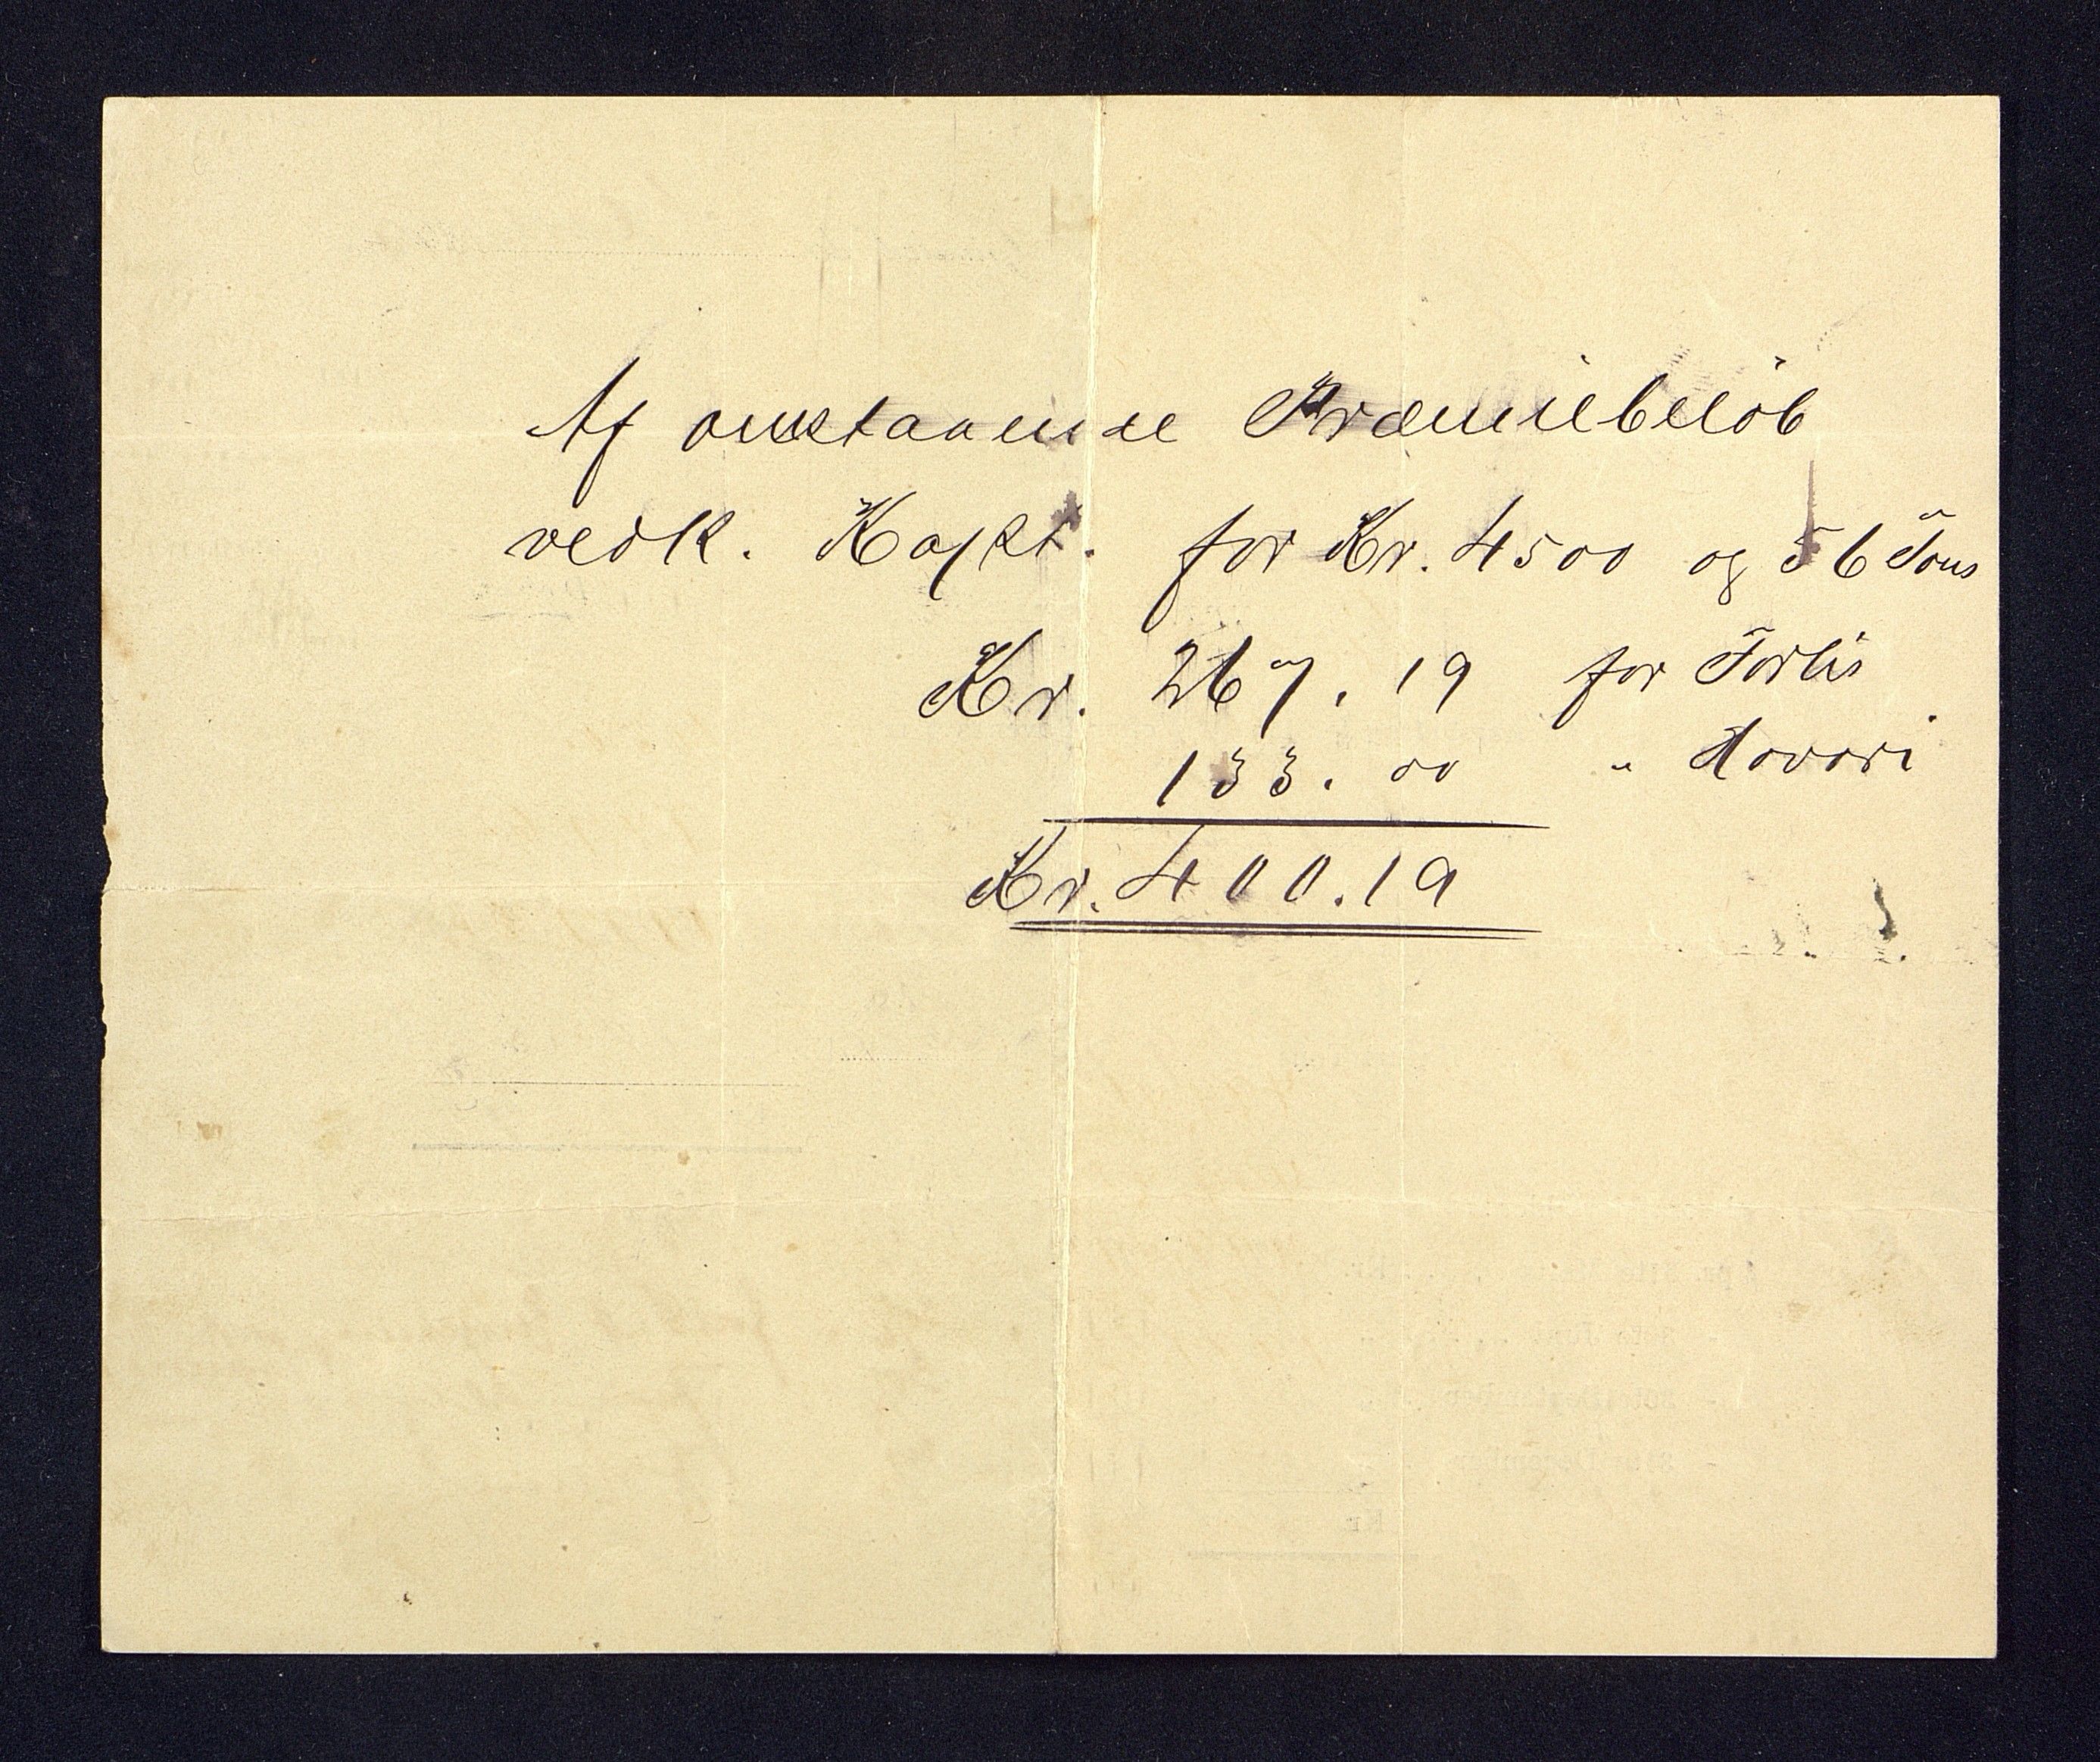 Af omstaaende Præmiebelöb
vedk. Kapt. for Kr. 4500 og 56 Tons
Kr. 267.19 for Forlis
133.00 " Havari
Kr. 400.19